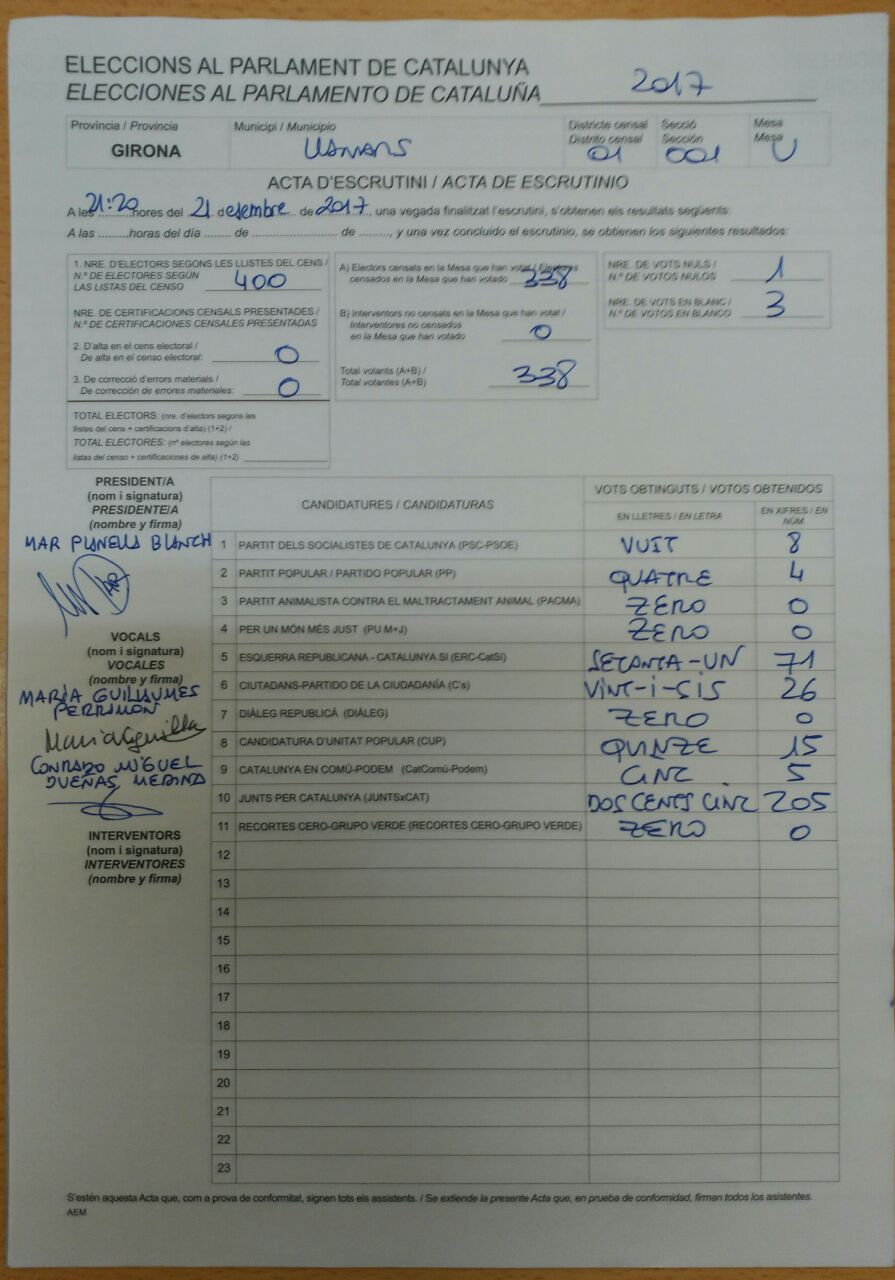 ELECCIONS AL PARLAMENT DE CATALUNYA
ELECCIONES AL PARLAMENTO DE CATALUÑA 2017
Provincia / Provincia Municipi / Municipio Districte censal Secció Mesa
Distrito censal Sección Mesa
GIRONA 01 001 U
ACTA D'ESCRUTINI / ACTA DE ESCRUTINIO
A les 21:20 hores del 21 desembre de 2017, una vegada finalitzat l'escrutini, s'obtenen els resultats següents:
A las .........horas del día ........ de .......................... de .........., y una vez concluido el escrutinio, se obtienen los siguientes resultados:
1. NRE. D'ELECTORS SEGONS LES LLISTES DEL CENS /
N.º DE ELECTORES SEGÚN
LAS LISTAS DEL CENSO 400
NRE. DE CERTIFICACIONS CENSALS PRESENTADES /
N.º DE CERTIFICACIONES CENSALES PRESENTADAS
2. D'alta en el cens electoral /
De alta en el censo electoral: 0
3. De correcció d'errors materials /
De corrección de errores materiales: 0
TOTAL ELECTORS: (nre. d'electors segons les
llistes del cens + certificacions d'alta) (1+2) /
TOTAL ELECTORES: (nº electores según las
listas del censo + certificaciones de alta) (1+2)
A) Electors censats en la Mesa que han votat / Electores
censados en la Mesa que han votado 338
B) Interventors no censats en la Mesa que han votat /
Interventores no censados
en la Mesa que han votado 0
Total votants (A+B) /
Total votantes (A+B) 338
NRE. DE VOTS NULS /
N.º DE VOTOS NULOS 1
NRE. DE VOTS EN BLANC /
N.º DE VOTOS EN BLANCO 3
PRESIDENT/A
(nom i signatura)
PRESIDENTE/A
(nombre y firma)
MAR PLANELLA BLANCH
VOCALS
(nom i signatura)
VOCALES
(nombre y firma)
MARÍA GUILLAUMES
CONRADO MIGUEL
DUEÑAS MEDINA
INTERVENTORS
(nom i signatura)
INTERVENTORES
(nombre y firma)
CANDIDATURES / CANDIDATURAS VOTS OBTINGUTS / VOTOS OBTENIDOS
EN LLETRES / EN LETRA EN XIFRES / EN NÚM.
1 PARTIT DELS SOCIALISTES DE CATALUNYA (PSC-PSOE) VUIT 8
2 PARTIT POPULAR / PARTIDO POPULAR (PP) QUATRE 4
3 PARTIT ANIMALISTA CONTRA EL MALTRACTAMENT ANIMAL (PACMA) ZERO 0
4 PER UN MÓN MÉS JUST (PU M+J) ZERO 0
5 ESQUERRA REPUBLICANA - CATALUNYA SI (ERC-CatSí) SETANTA-UN 71
6 CIUTADANS-PARTIDO DE LA CIUDADANÍA (C's) VINT-I-SIS 26
7 DIÀLEG REPUBLICÀ (DIÀLEG) ZERO 0
8 CANDIDATURA D'UNITAT POPULAR (CUP) QUINZE 15
9 CATALUNYA EN COMÚ-PODEM (CatComú-Podem) CINC 5
10 JUNTS PER CATALUNYA (JUNTSxCAT) DOS CENTS CINC 205
11 RECORTES CERO-GRUPO VERDE (RECORTES CERO-GRUPO VERDE) ZERO 0
12
13
14
15
16
17
18
19
20
21
22
23
S'estén aquesta Acta que, com a prova de conformitat, signen tots els assistents. / Se extiende la presente Acta que, en prueba de conformidad, firman todos los asistentes.
AEM